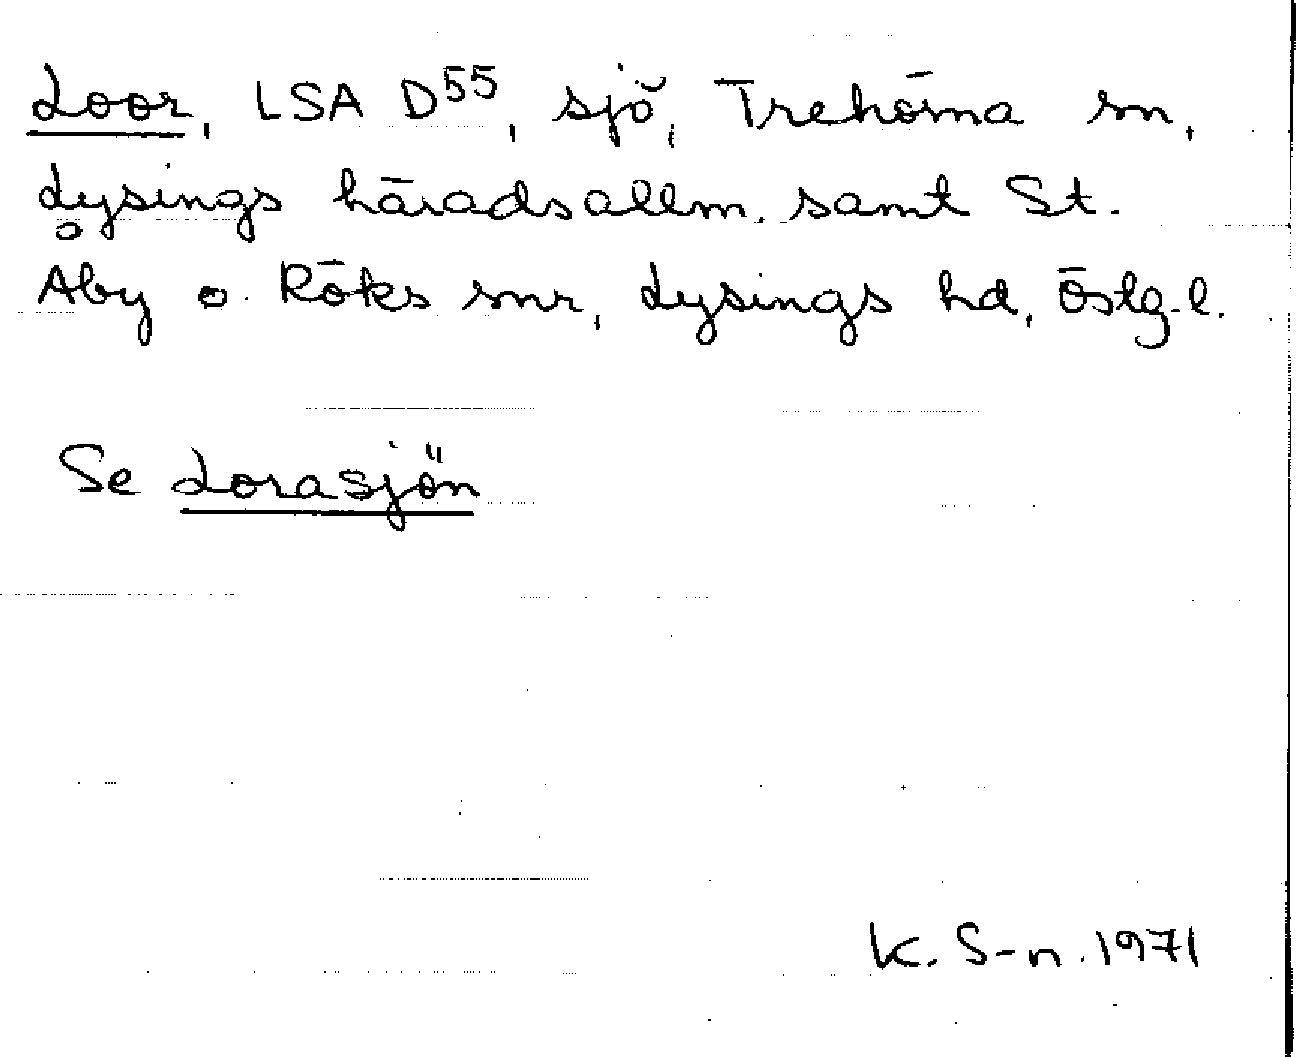 Loor, LSA D55, sjö, Trehörna sn,
Lysings häradsallm. samt St.
Åby o. Röks snr, Lysings hd, Östg.l.
Se Lorasjön
K. S-n. 1971